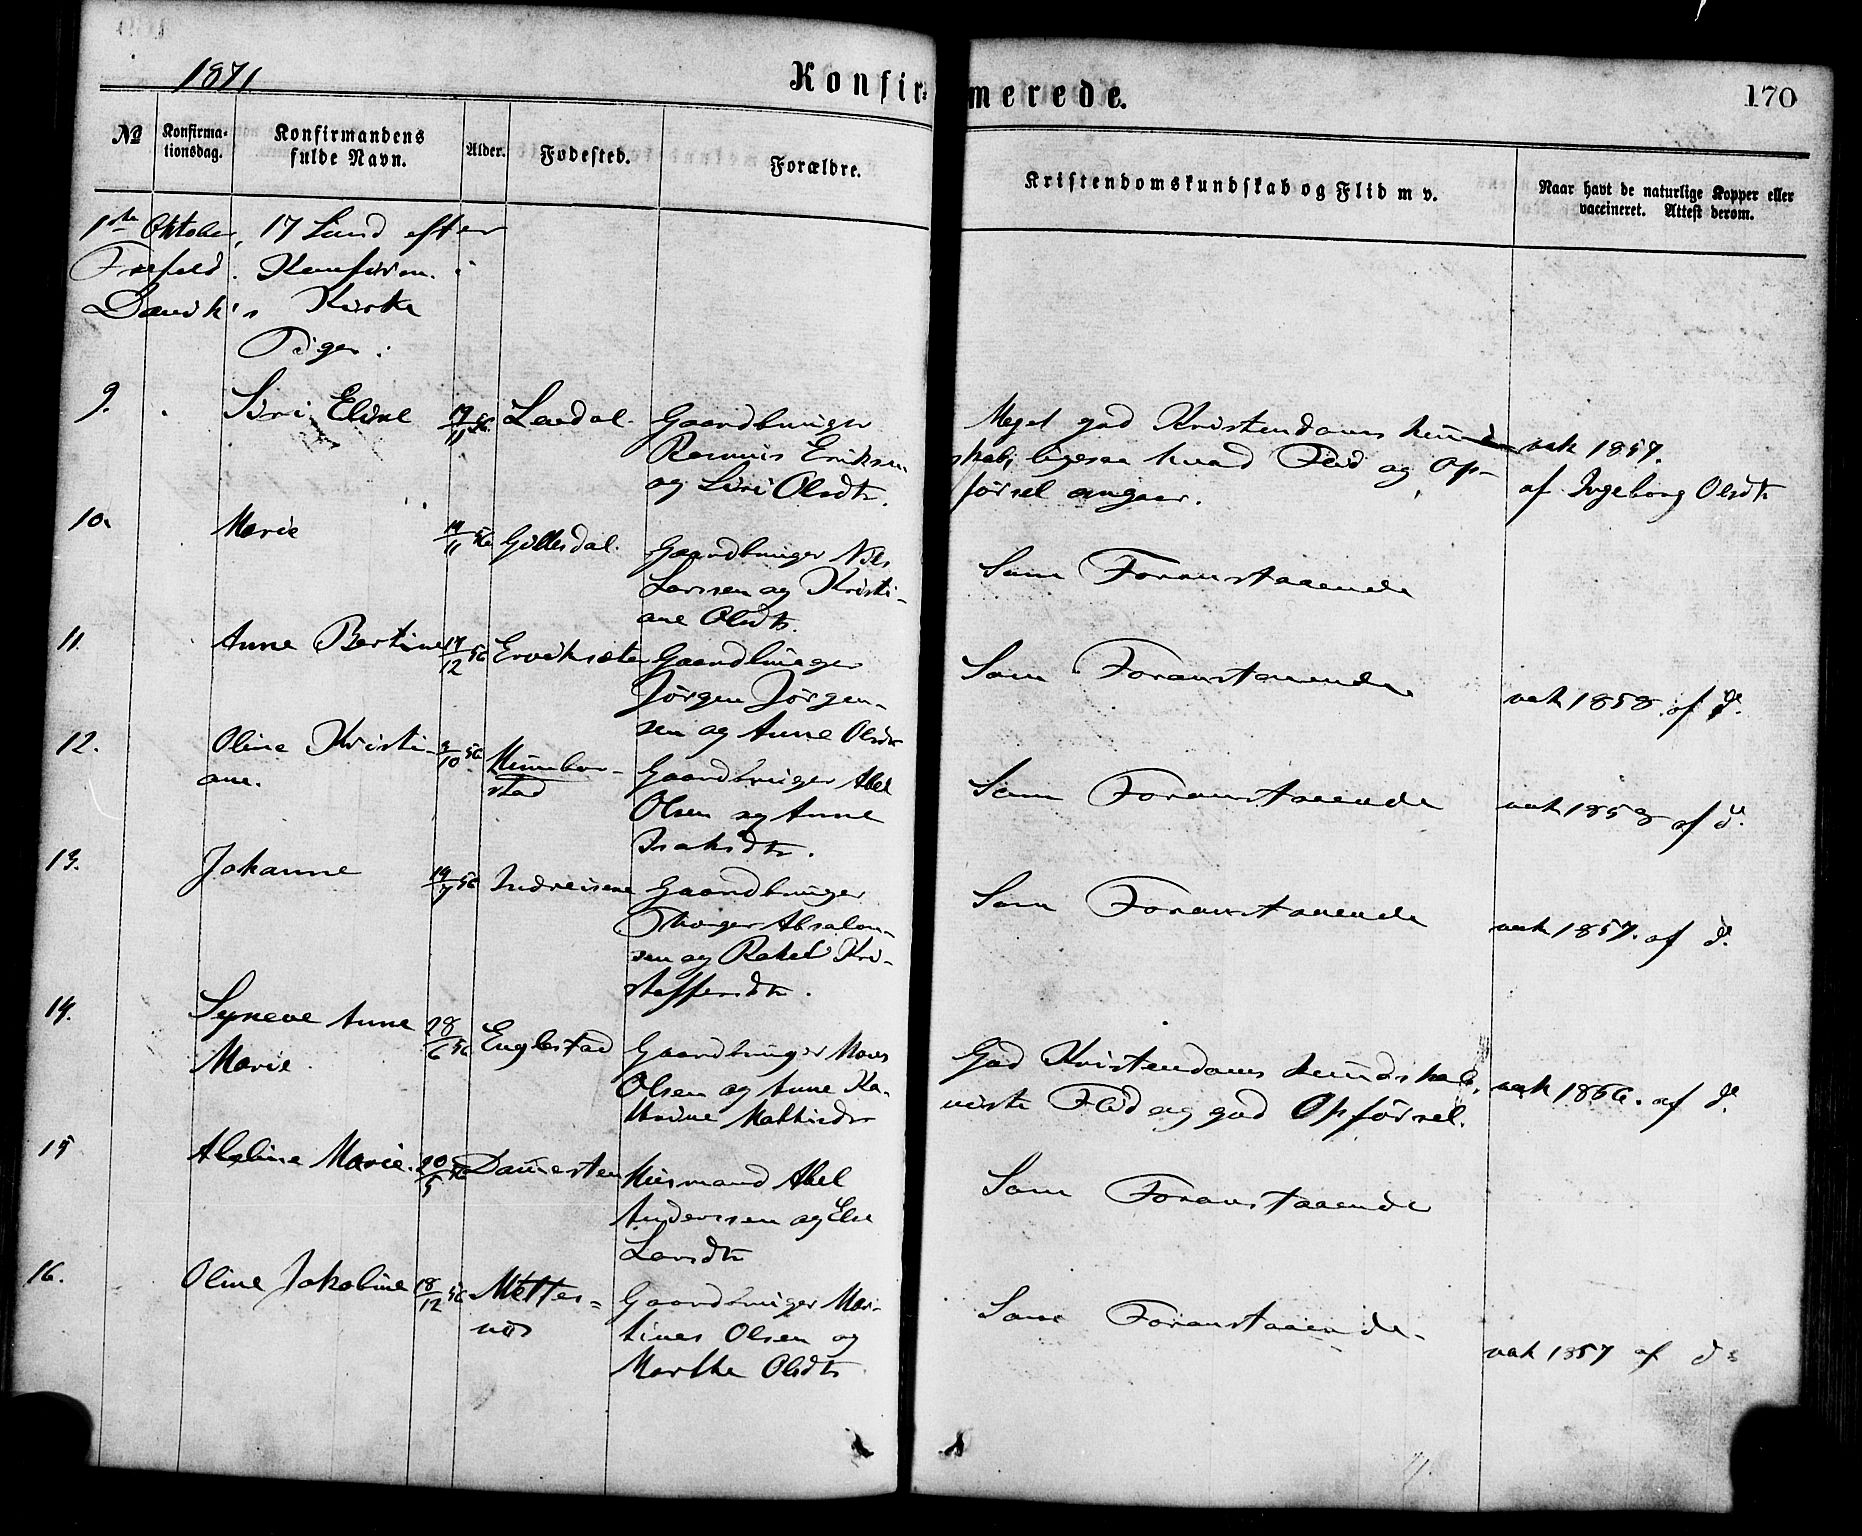 1871
Konfirmerede.
170
No
Konfirmationsdag.
Konfirmandens fulde Navn.
Alder.
Fødested.
Forældre.
Kristendomskundskab og Flid m v.
Naar havt de naturlige Kopper eller vaccineret. Attest derom.
1ste Oktober, 17 Sund efter
Trefold. Konfirm. i
Davik's Kirke
Piger:
9. Siri Eline 17/11 56. Lardal. Gaardbruger
Rasmus Eriksen
og Siri Olsdtr.
Meget god Kristendomskund-
skab, ligesaa hvad Flid og Op-
førsel angaar.
vak 1857.
af Ingeborg Olsdtr
10. Marie 14/11 56 Gillesdal. Gaardbruger Nils
Larssen og Kristi-
ane Olsdtr.
Som Foranstaaende
11. Anne Bertine 14/12 56 Erviksæter Gaardbruger
Jørgen Jørgen-
sen og Anne Olsdtr
Som Foranstaaende
vak 1858. af do.
12. Oline Kristi-
ane. 9/10 56 Humbor-
stad
Gaardbruger Abel
Olsen og Anne
Isaksdtr.
Som Foranstaaende
vak 1858 af do.
13. Johanne 19/7 56 Indreisene Gaardbruger
Absalon-
sen og Rakel Kri-
stoffersdtr.
Som Foranstaaende
vak 1857. af do.
14. Synneve Anne
Marie. 28/6 56 Englestad Gaardbruger Mons
Olsen og Anne Ka-
thrine Mathisdtr
God Kristendomskundskab,
Flid og god Opførsel.
vak 1856. af do.
15 Abeline Marie. 20/5 56 Dauresten Husmand Abel
Anderssen og Else
Larsdtr
Som Foranstaaende
16. Oline Jakobine 18/12 56 Mettes-
næs
Gaardbruger Mar-
tines Olsen og
Marthe Olsdtr
Som Foranstaaende.
vak 1857 af do